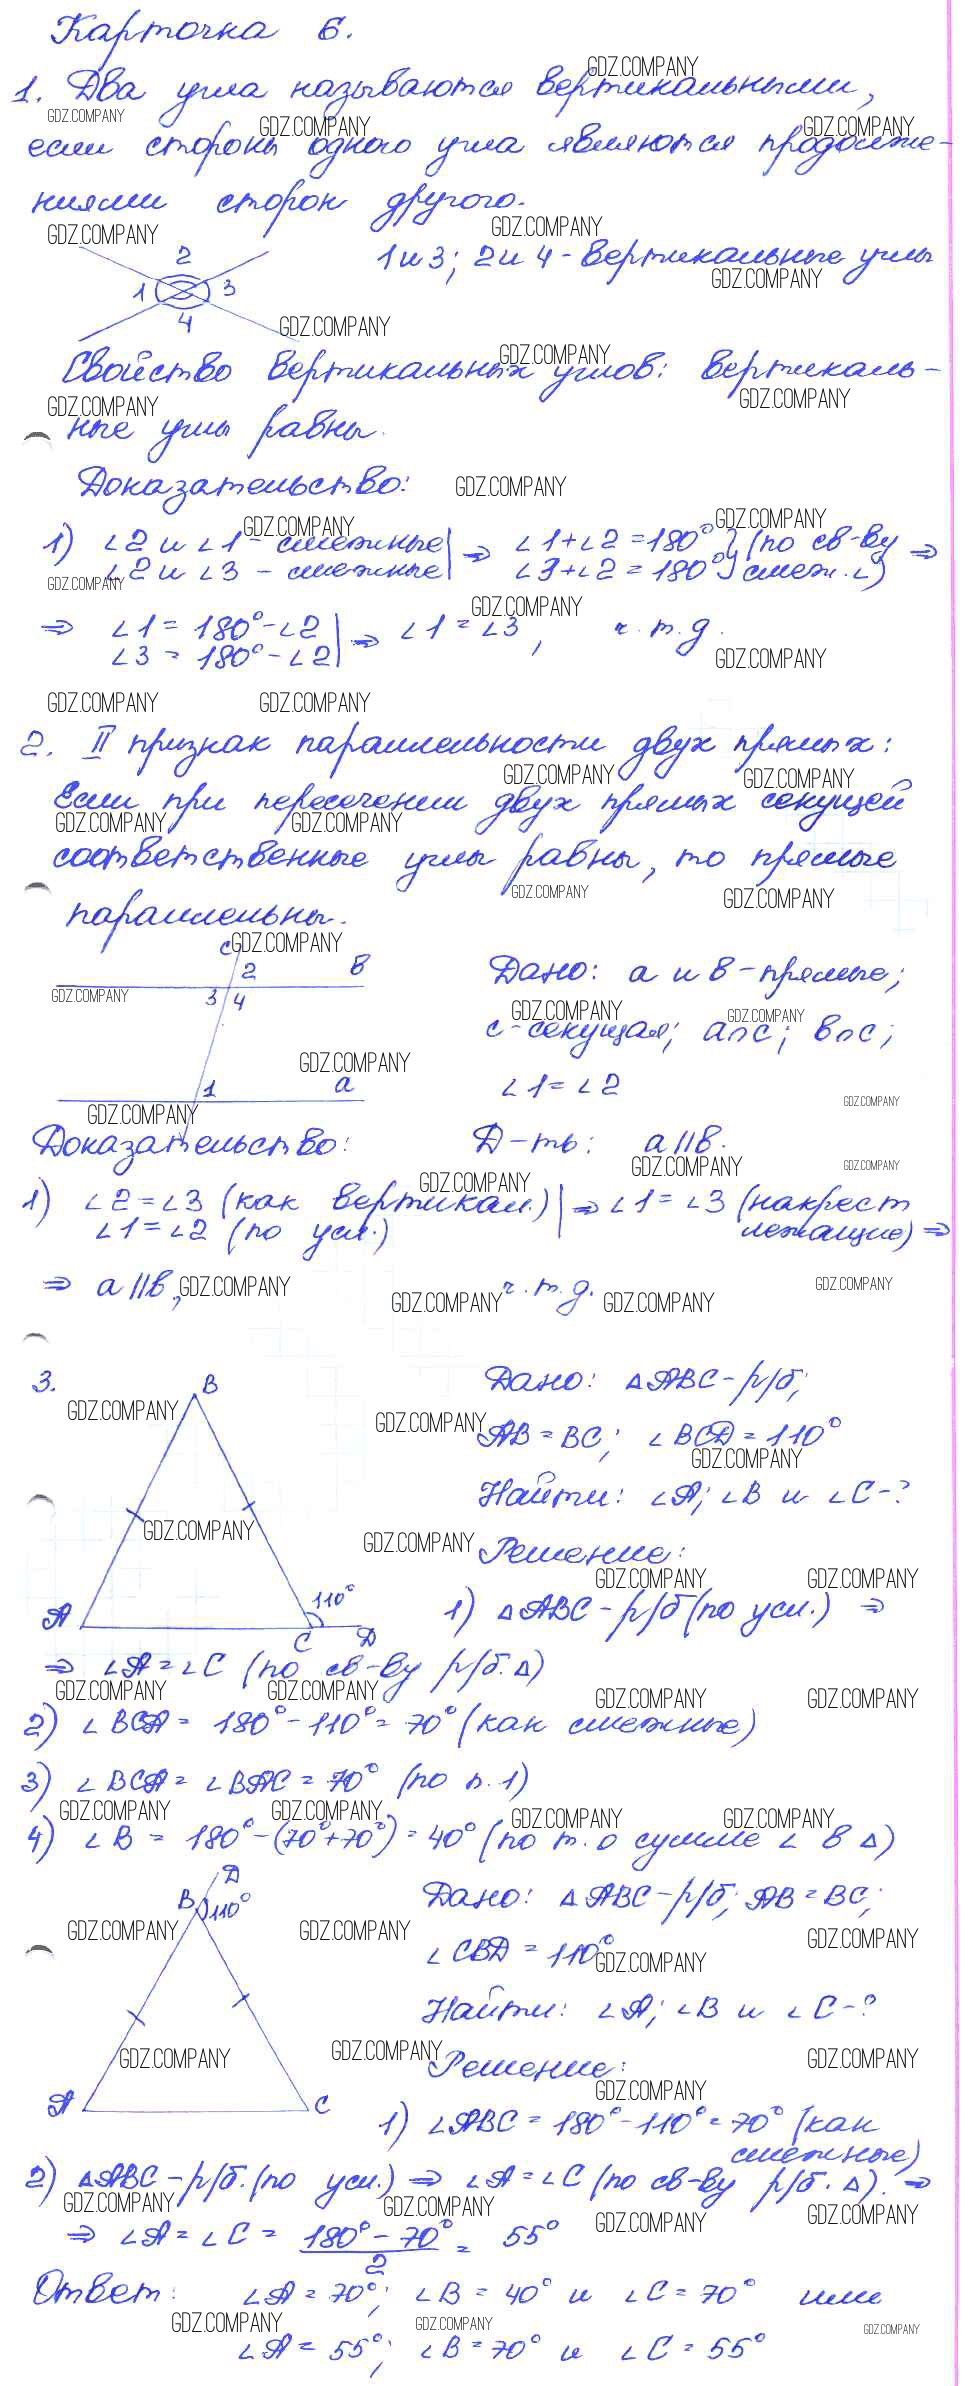 Карточка 6.
1. Два угла называются вертикальными,
если стороны одного угла являются продолже-
ниями сторон другого.
1 и 3; 2 и 4 - вертикальные углы
2
1 3
4
Свойство вертикальных углов: вертикаль-
ные углы равны.
Доказательство:
1) ∠2 и ∠1 - смежные | ⇒ ∠1+∠2=180° } (по св-ву ⇒
∠2 и ∠3 - смежные | ∠3+∠2=180° } смеж. ∠)
⇒ ∠1 = 180°-∠2 | ⇒ ∠1 = ∠3, ч.т.д.
∠3 = 180°-∠2 |
2. II признак параллельности двух прямых:
Если при пересечении двух прямых секущей
соответственные углы равны, то прямые
параллельны.
c
2 в
3 4
1 а
Дано: а и в - прямые;
с - секущая; а∩с; в∩с;
∠1 = ∠2
Доказательство: Д-ть: а||в.
1) ∠2=∠3 (как вертикал.) | ⇒ ∠1=∠3 (накрест
∠1=∠2 (по усл.) | лежащие) ⇒
⇒ а||в, ч.т.д.
3.
B
A C D
110°
Дано: △ABC - р/б;
AB = BC; ∠BCD = 110°
Найти: ∠A; ∠B и ∠C - ?
Решение:
1) △ABC - р/б (по усл.) ⇒
⇒ ∠A = ∠C (по св-ву р/б. △)
2) ∠BCA = 180°-110° = 70° (как смежные)
3) ∠BCA = ∠BAC = 70° (по п.1)
4) ∠B = 180°-(70°+70°) = 40° (по т. о сумме ∠ в △)
D
B 110°
A C
Дано: △ABC - р/б; AB = BC;
∠CBD = 110°
Найти: ∠A; ∠B и ∠C - ?
Решение:
1) ∠ABC = 180°-110° = 70° (как
смежные)
2) △ABC - р/б. (по усл.) ⇒ ∠A = ∠C (по св-ву р/б. △). ⇒
⇒ ∠A = ∠C = (180° - 70°)/2 = 55°
Ответ: ∠A = 70°; ∠B = 40° и ∠C = 70° или
∠A = 55°; ∠B = 70° и ∠C = 55°
GDZ.COMPANY